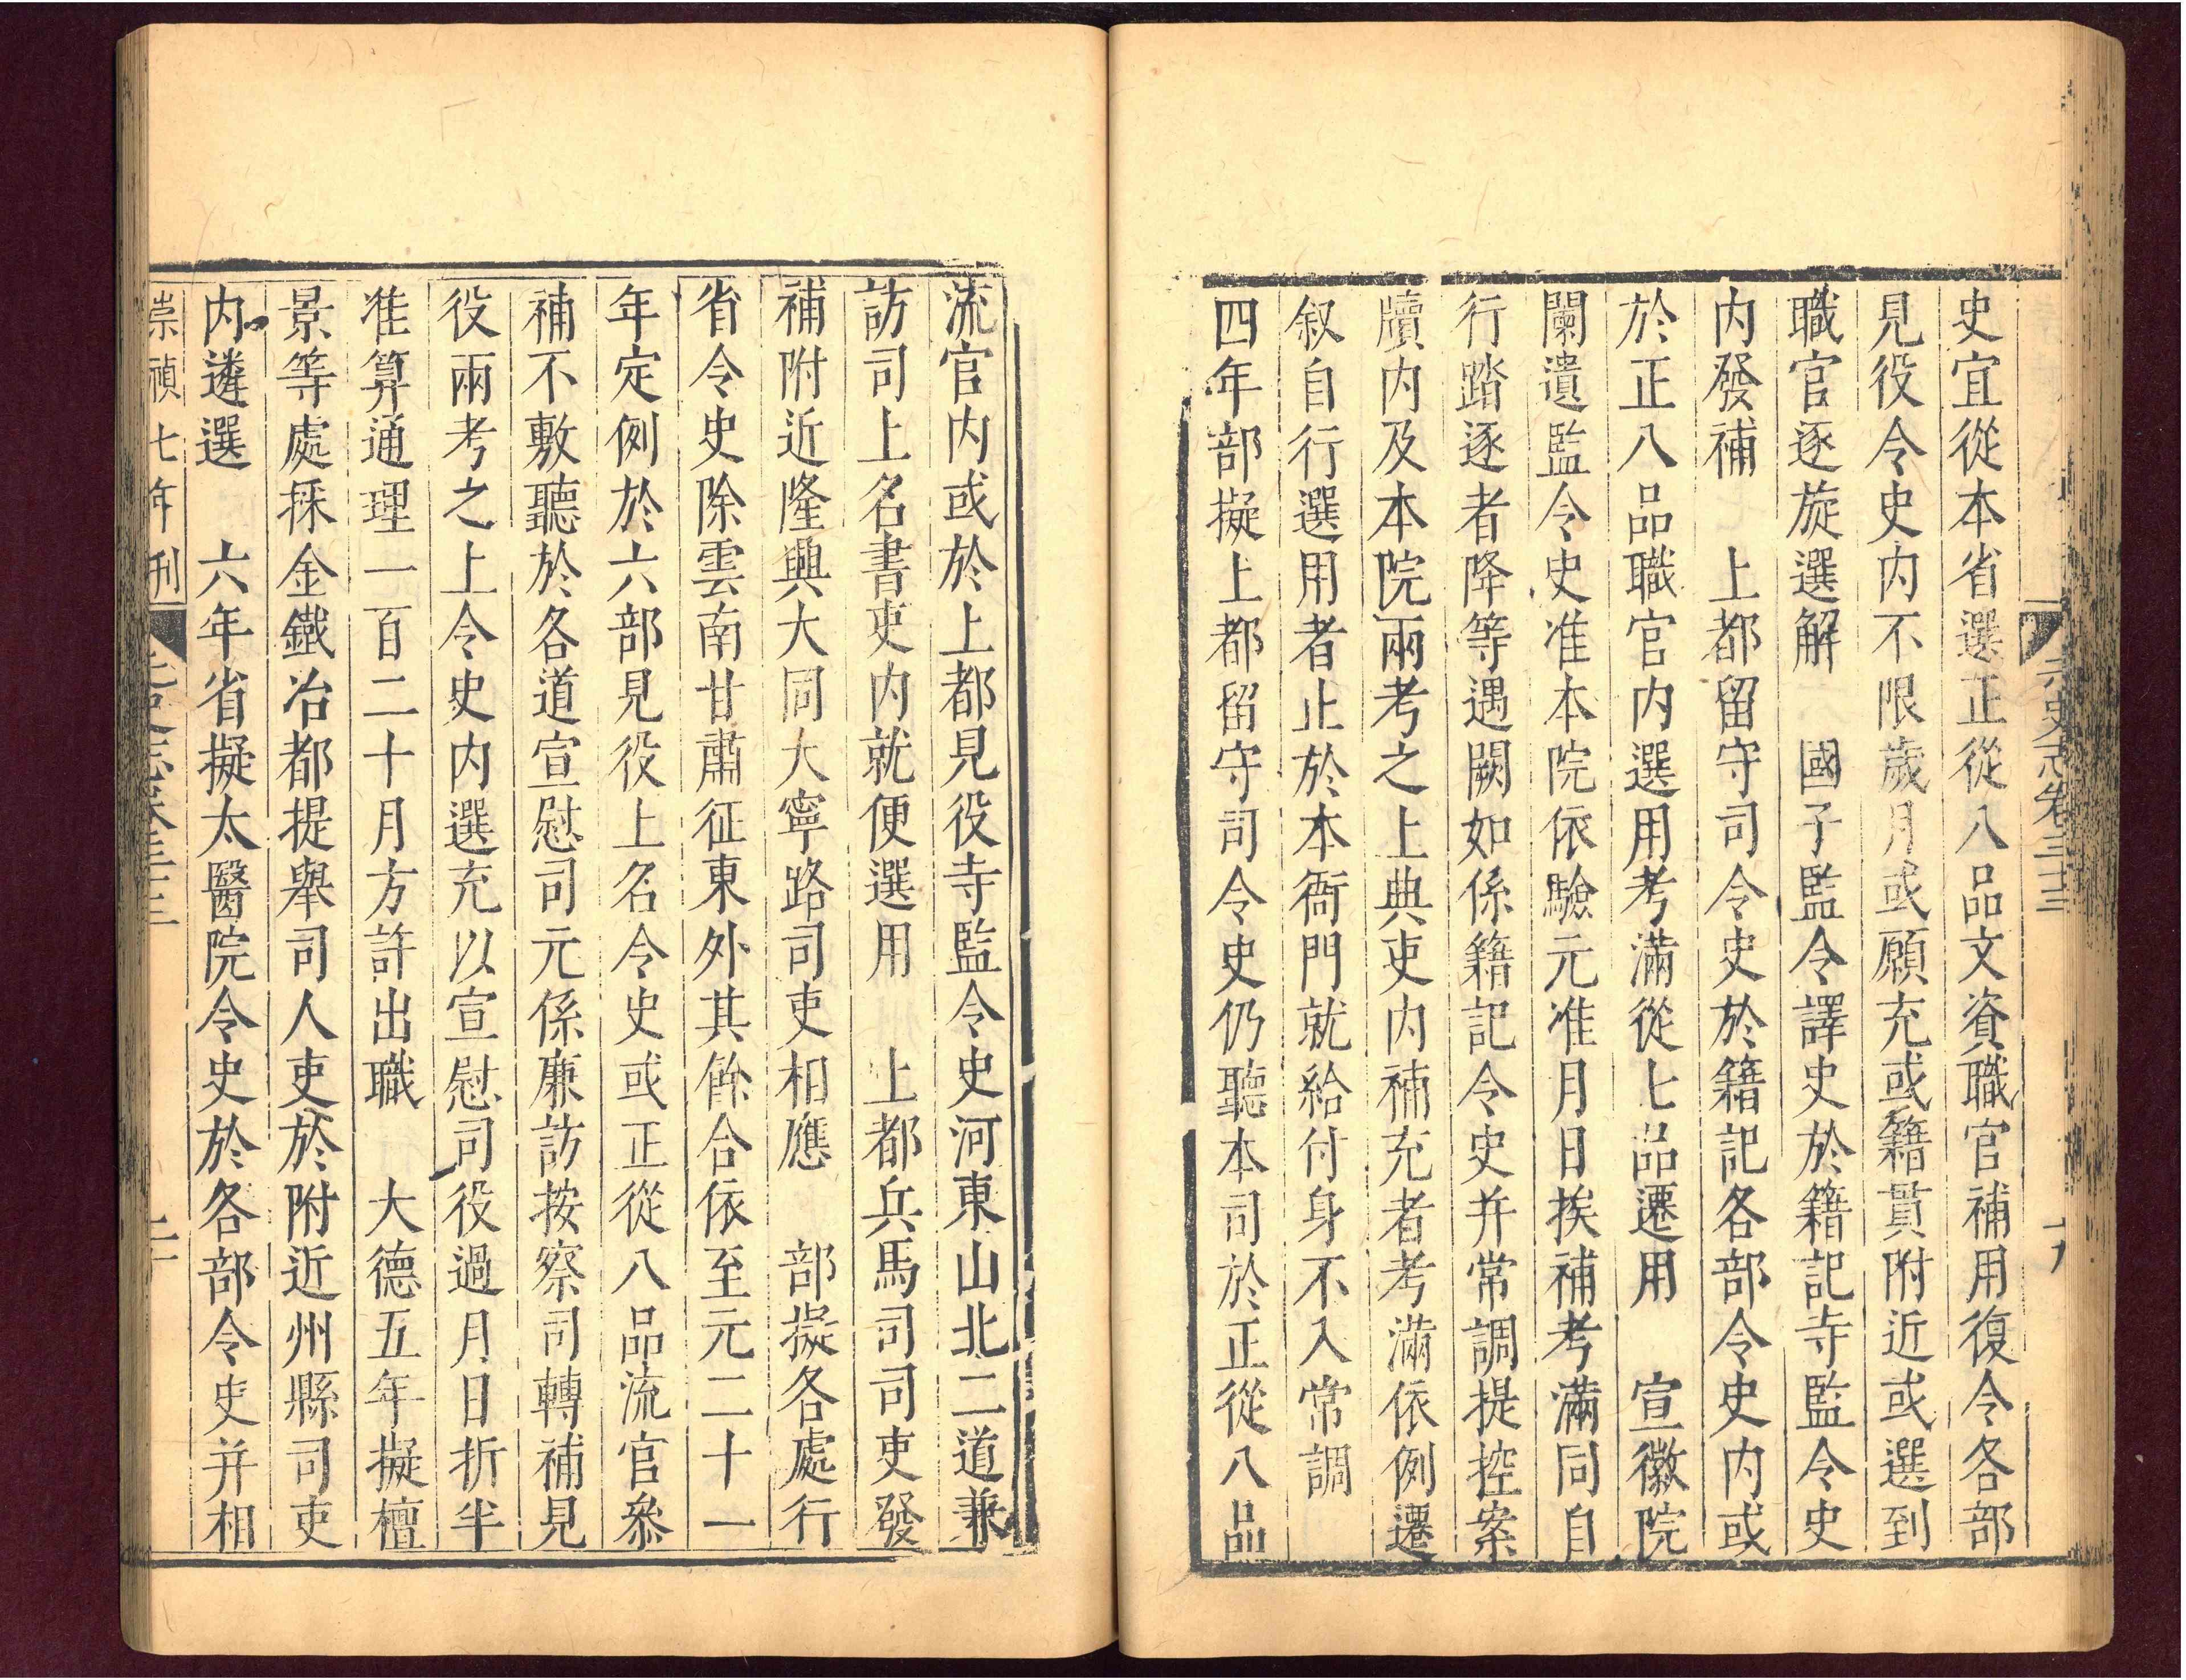 元史志卷三十三
十九
史宜從本省選正從八品文資職官補用復令各部
見役令史内不限歲月或願充或籍貫附近或選到
職官逐旋選解　國子監令譯史於籍記寺監令史
内發補　上都留守司令史於籍記各部令史内或
於正八品職官内選用考滿從七品遷用　宣徽院
闌遺監令史准本院依驗元准月日挨補考滿同自
行踏逐者降等遇闕如係籍記令史并常調提控案
牘内及本院兩考之上典吏内補充者考滿依例遷
叙自行選用者止於本衙門就給付身不入常調
四年部擬上都留守司令史仍聽本司於正從八品
流官内或於上都見役寺監令史河東山北二道兼
訪司上名書吏内就便選用　上都兵馬司司吏發
補附近隆興大同大寧路司吏相應　部擬各處行
省令史除雲南甘肅征東外其餘合依至元二十一
年定例於六部見役上名令史或正從八品流官參
補不敷聽於各道宣慰司元係廉訪按察司轉補見
役兩考之上令史内選充以宣慰司役過月日折半
准算通理一百二十月方許出職　大德五年擬檀
景等處採金鐵冶都提舉司人吏於附近州縣司吏
内遴選　六年省擬太醫院令史於各部令史并相
崇禎七年刊
元史志卷三十三
二十